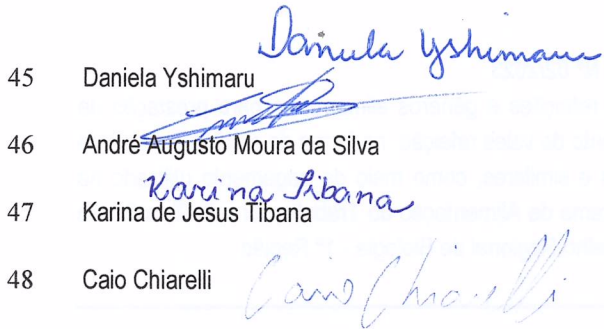 Daniela Yshimaru
45 Daniela Yshimaru
46 André Augusto Moura da Silva
Karina Tibana
47 Karina de Jesus Tibana
48 Caio Chiarelli
Caio Chiarelli